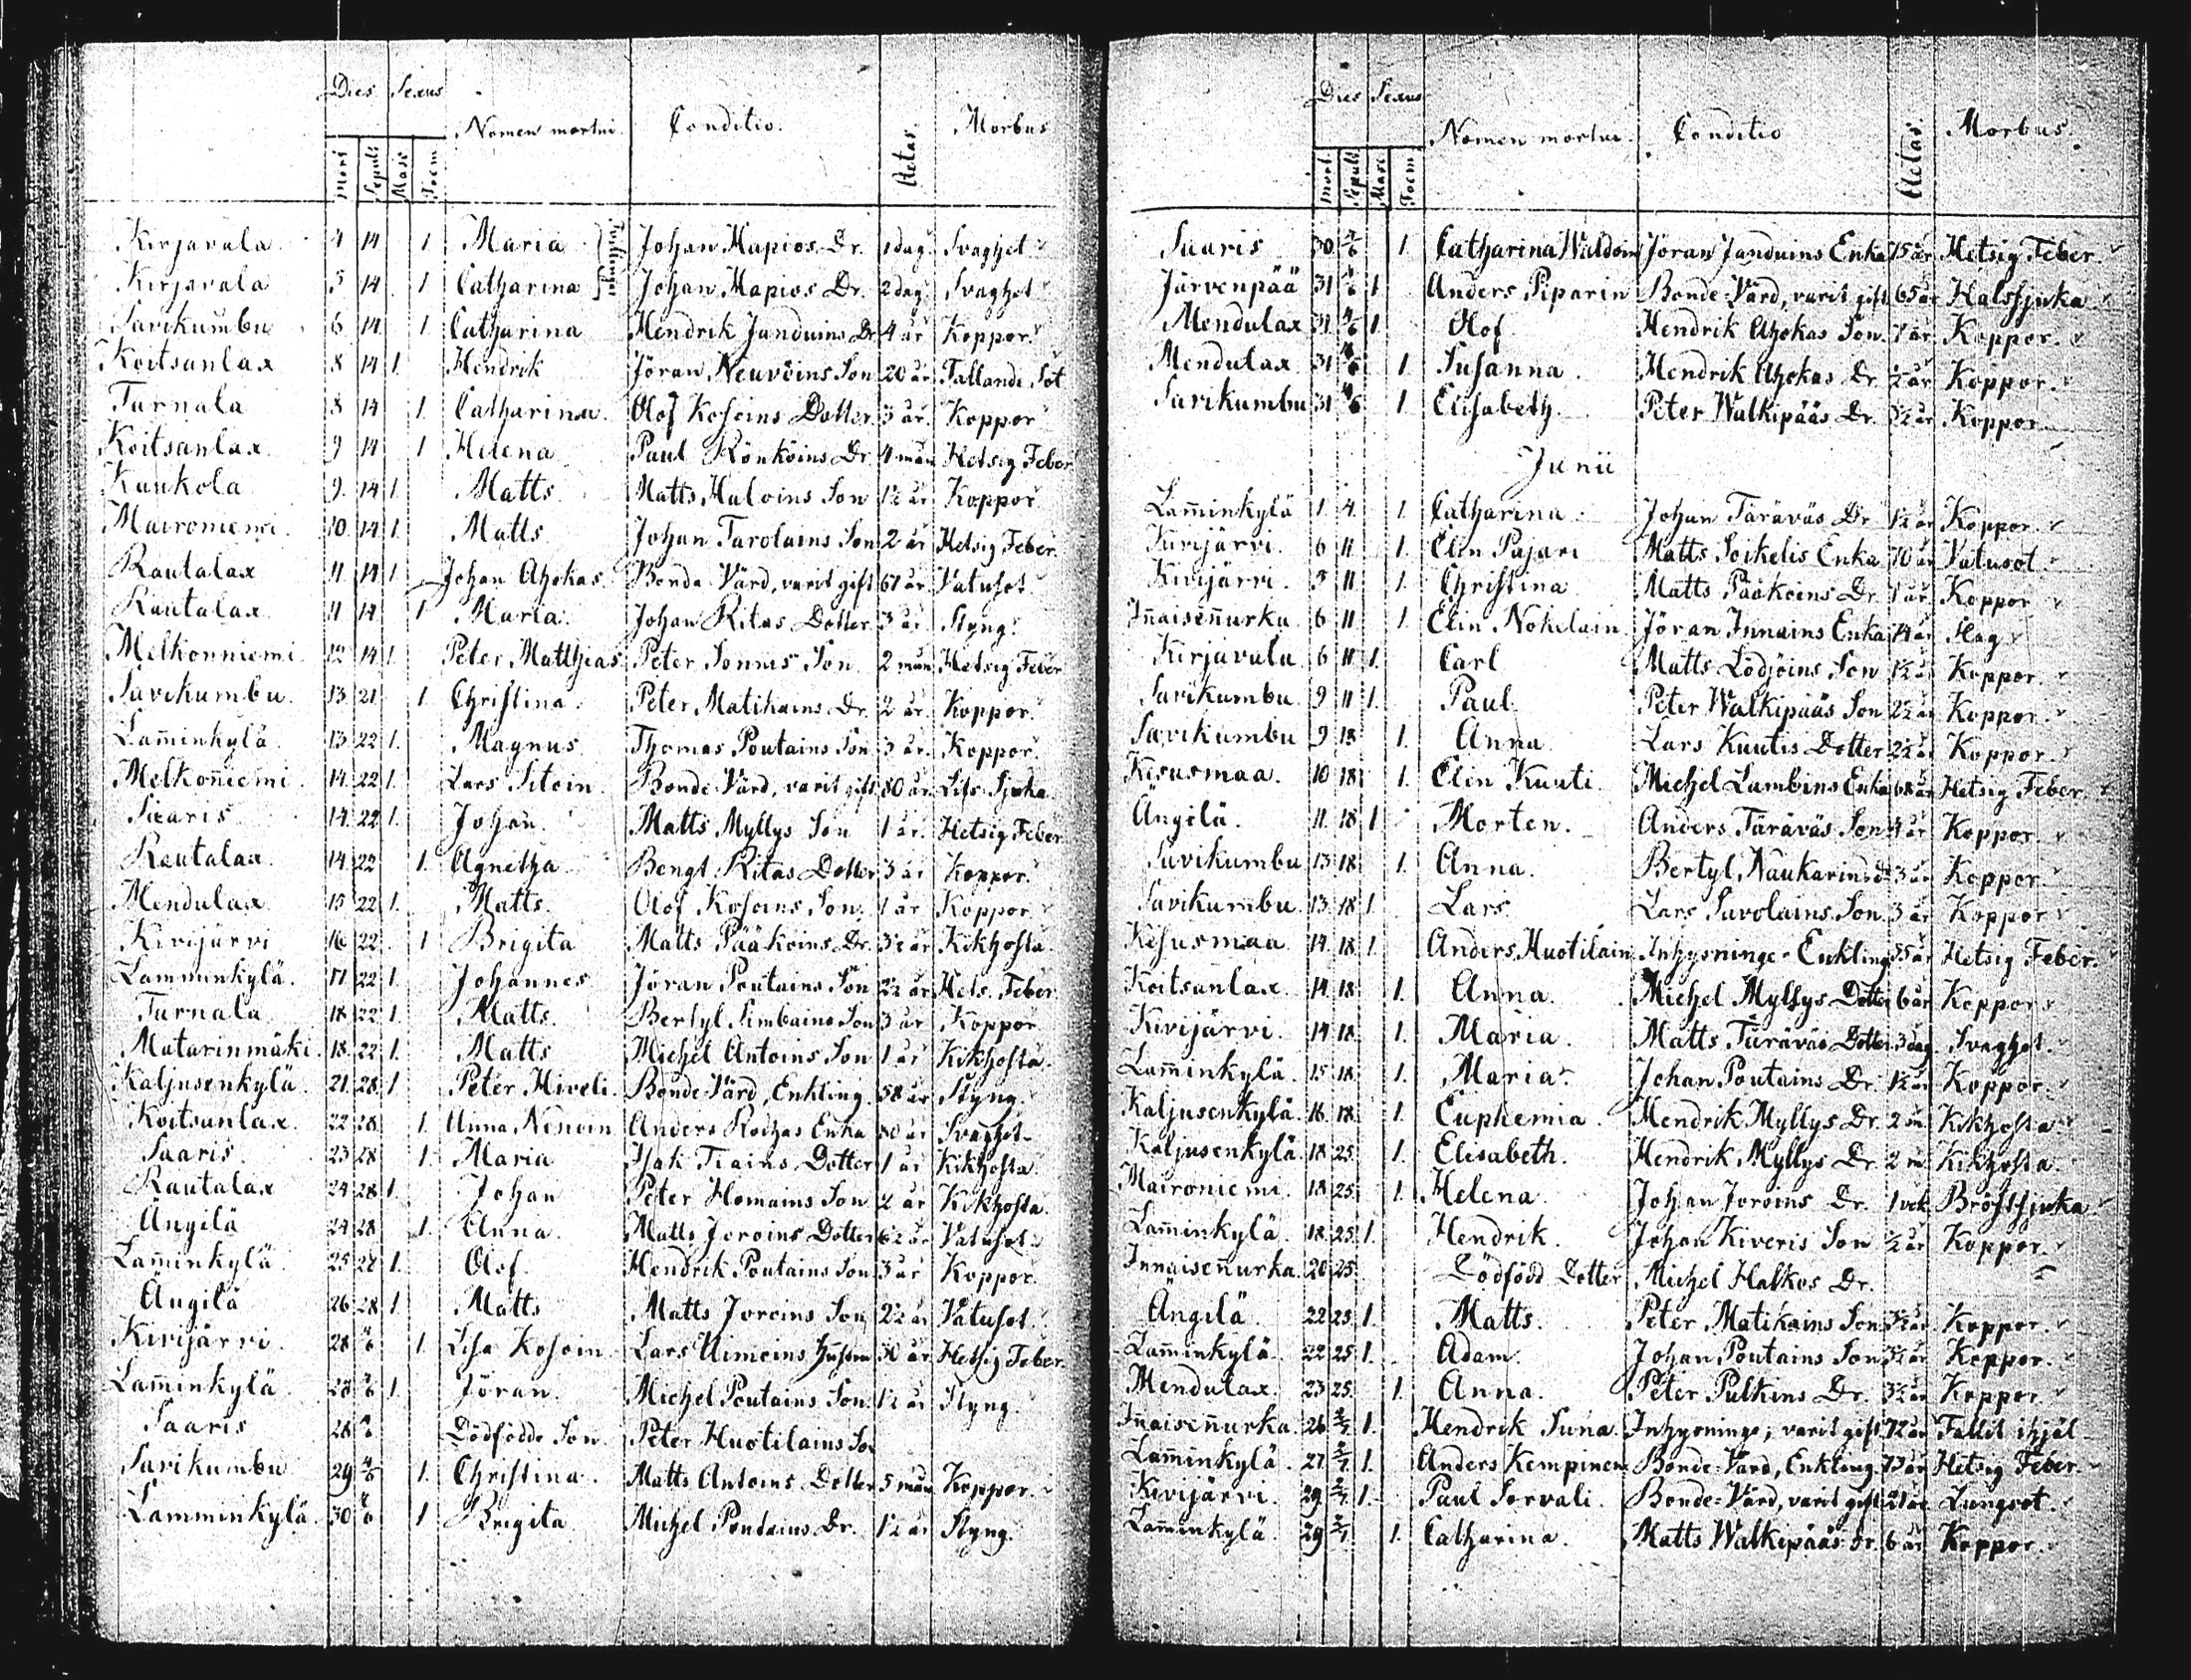 Dies Sexus
Nomen mortui. Conditio. Aetas. Morbus
Mort Sepult Masc Foem
Kirjavala 4 14 1. Maria Tvillingar Johan Mapios Dr. 1 dag. Svaghet
Kirjavala 5 14 1 Catharina Johan Mapios Dr. 2 dag. Svaghet
Savikumbu 6 14 1 Catharina Hendrik Janduins Dr 4 år Koppor
Koitsanlax 8 14 1. Hendrik Jöran Neuvöins Son 20 år Fallande Sot
Tarnala 8 14 1. Catharina. Olof Kosoins Dotter 3 år. Koppor
Koitsanlax 9 14 1 Helena Paul Rönköins Dr. 4 mån Hetsig Feber
Kaukola 9. 14 1. Matts. Matts Haloins Son 1½ år Koppor
Maironiemi. 10 14 1. Matts. Johan Tarolains Son 2 år Hetsig Feber.
Rautalax 11 14 1. Johan Ahokas. Bonde Värd, varit gift 67 år. Vatusot
Rautalax. 11 14 1 Maria. Johan Ritas Dotter 3 år Styng.
Melkonniemi. 12 14 1. Peter Matthias Peter Sonnis Son. 2 mån Hetsig Feber
Savikumbu. 13 21 1. Christina. Peter Matikains Dr. 2 år. Koppor.
Lam̄inkylä. 13 22 1. Magnus. Thomas Poutains Son 3 år. Koppor.
Melkon̄iemi. 14. 22 1. Lars Sitoin. Bonde Värd, varit gift 80 år. Lifs-Sjuka
Saaris. 14. 22 1. Johan. Matts Myllys Son 1 år. Hetsig Feber
Rautalax. 14 22 1. Agnetha Bengt Ritas Dotter 3 år Koppor.
Mendulax 15 22 1. Matts. Olof Kosoins Son. 1 år Koppor
Kivijärvi 16 22 1 Brigita Matts Pääköins Dr. 3½ år Kikhosta.
Lamminkylä. 17 22 1. Johannes Jöran Poutains Son 2½ år Hets. Feber
Tarnala. 18 22 1. Matts. Bertyl Simbains Son 3 år Koppor
Matarinmäki. 18. 22 1. Matts Michel Antoins Son 1 år Kikhosta.
Kaljusenkylä. 21. 28 1 Peter Hiveli. Bonde-Värd, Enkling. 58 år Styng.
Koitsanlax. 22 28 1. Anna Nenoin Anders Rodzas Enka 80 år Svaghet
Saaris. 23 28 1. Maria Isak Tiains Dotter 1 år Kikhosta.
Rautalax 24 28 1. Johan Peter Homains Son 2 år Kikhosta.
Ängilä 24 28 1. Anna. Matts Joroins Dotter 6½ år Vatusot.
Lam̄inkylä. 25 28 1. Olof. Hendrik Poutains Son 3 år Koppor.
Ängilä 26 28 1. Matts Matts Joroins Son 2½ år Vatusot.
Kivijärvi. 28 4/6 1. Lisa Kosoin. Lars Uimoins Hustru 30 år Hetsig Feber.
Lam̄inkylä. 28 4/6 1. Jöran. Michel Poutains Son. 1½ år Styng.
Saaris 28 4/6 Dödfödde Son. Peter Huotilains So
Savikumbu 29 4/6 1. Christina. Matts Antoins Dotter 5 mån Koppor.
Lamminkylä. 30 4/6 1 Brigita Michel Poutains Dr. 1½ år Styng.
Dies Sexus
Nomen mortui. Conditio Aetas. Morbus.
Mort Sepult Masc Foem
Saaris 30. 4/6 1. Catharina Waldoin Jöran Janduins Enka 75 år Hetsig Feber.
Järvenpää 31 4/6 1. Anders Piparin Bonde-Värd, varit gift 65 år Halssjuka
Mendulax 31 4/6 1. Olof Hendrik Ahokas Son. 7 år. Koppor.
Mendulax 31 4/6 1. Susanna. Hendrik Ahokas Dr. ½ år Koppor.
Savikumbu 31 4/6 1. Elisabeth. Peter Walkipääs Dr. ½ år Koppor.
Junii
Lam̄inkylä 1. 4. 1. Catharina. Johan Täräväs Dr. 1½ år Koppor.
Kivijärvi. 6 11 1. Elin Pajari Matts Soikelis Enka 70 år Vatusot.
Kivijärvi. 5 11 1. Christina. Matts Pääköins Dr. 1 år Koppor
In̄aisen̄urka. 6 11 1. Elin Nokelain. Jöran Innains Enka 74 år Slag
Kirjavala. 6 11 1. Carl Matts Lödjöins Son 1½ år Koppor.
Savikumbu. 9 11 1. Paul. Peter Walkipääs Son 2½ år Koppor.
Savikumbu 9 18 1. Anna. Lars Kuutis Dotter 2½ år Koppor.
Kesusmaa. 10 18 1. Elin Kuuti. Michel Lambins Enka 68 år Hetsig Feber.
Ängilä. 11. 18 1 Morten. Anders Täräväs Son 4 år Koppor.
Savikumbu 13 18. 1. Anna. Bertyl Naukarins Dr 3 år Koppor.
Savikumbu. 13. 18 1. Lars. Lars Savolains Son. 3 år Koppor
Kesusmaa. 14. 18 1. Anders Huotilain. Inhysninge-Enkling 55 år Hetsig Feber.
Koitsanlax. 14. 18 1. Anna. Michel Myllys Dotter 6 år Koppor
Kivijärvi. 14 18. 1. Maria. Matts Täräväs Dotter 3 dag. Svaghet.
Lam̄inkylä. 15 18. 1. Maria. Johan Poutains Dr. 1½ år Koppor.
Kaljusenkylä. 16. 18. 1. Euphemia. Hendrik Myllys Dr. 2 m Kikhosta.
Kaljusenkylä. 18 25. 1. Elisabeth. Hendrik Myllys Dr. 2 m Kikhosta.
Maironiemi. 18 25. 1. Helena. Johan Joroins Dr. 1 vek. Bröstsjuka
Lam̄inkylä. 18. 25 1. Hendrik. Johan Kiveris Son ½ år Koppor.
Innaisen̄urka. 20 25. Dödfödd Dotter Michel Halkos Dr.
Ängilä. 22 25 1. Matts. Peter Matikains Son 3½ år Koppor.
Lam̄inkylä. 22 25 1. Adam. Johan Poutains Son 3½ år Koppor.
Mendulax. 23 25. 1. Anna. Peter Pulkins Dr. 3½ år Koppor.
In̄aisen̄urka. 26 2/7 1. Hendrik Suna. Inhysninge, varit gift 72 år Fallit ihjäl
Lam̄inkylä. 27 2/7 1. Anders Kempinen Bonde-Värd, Enkling. 73 år Hetsig Feber.
Kivijärvi. 29 2/7 1. Paul Sorvali. Bonde-Värd, varit gift 21 år Lungsot.
Lam̄inkylä. 29 2/7 1. Catharina. Matts Walkipääs Dr. 6 år Koppor.